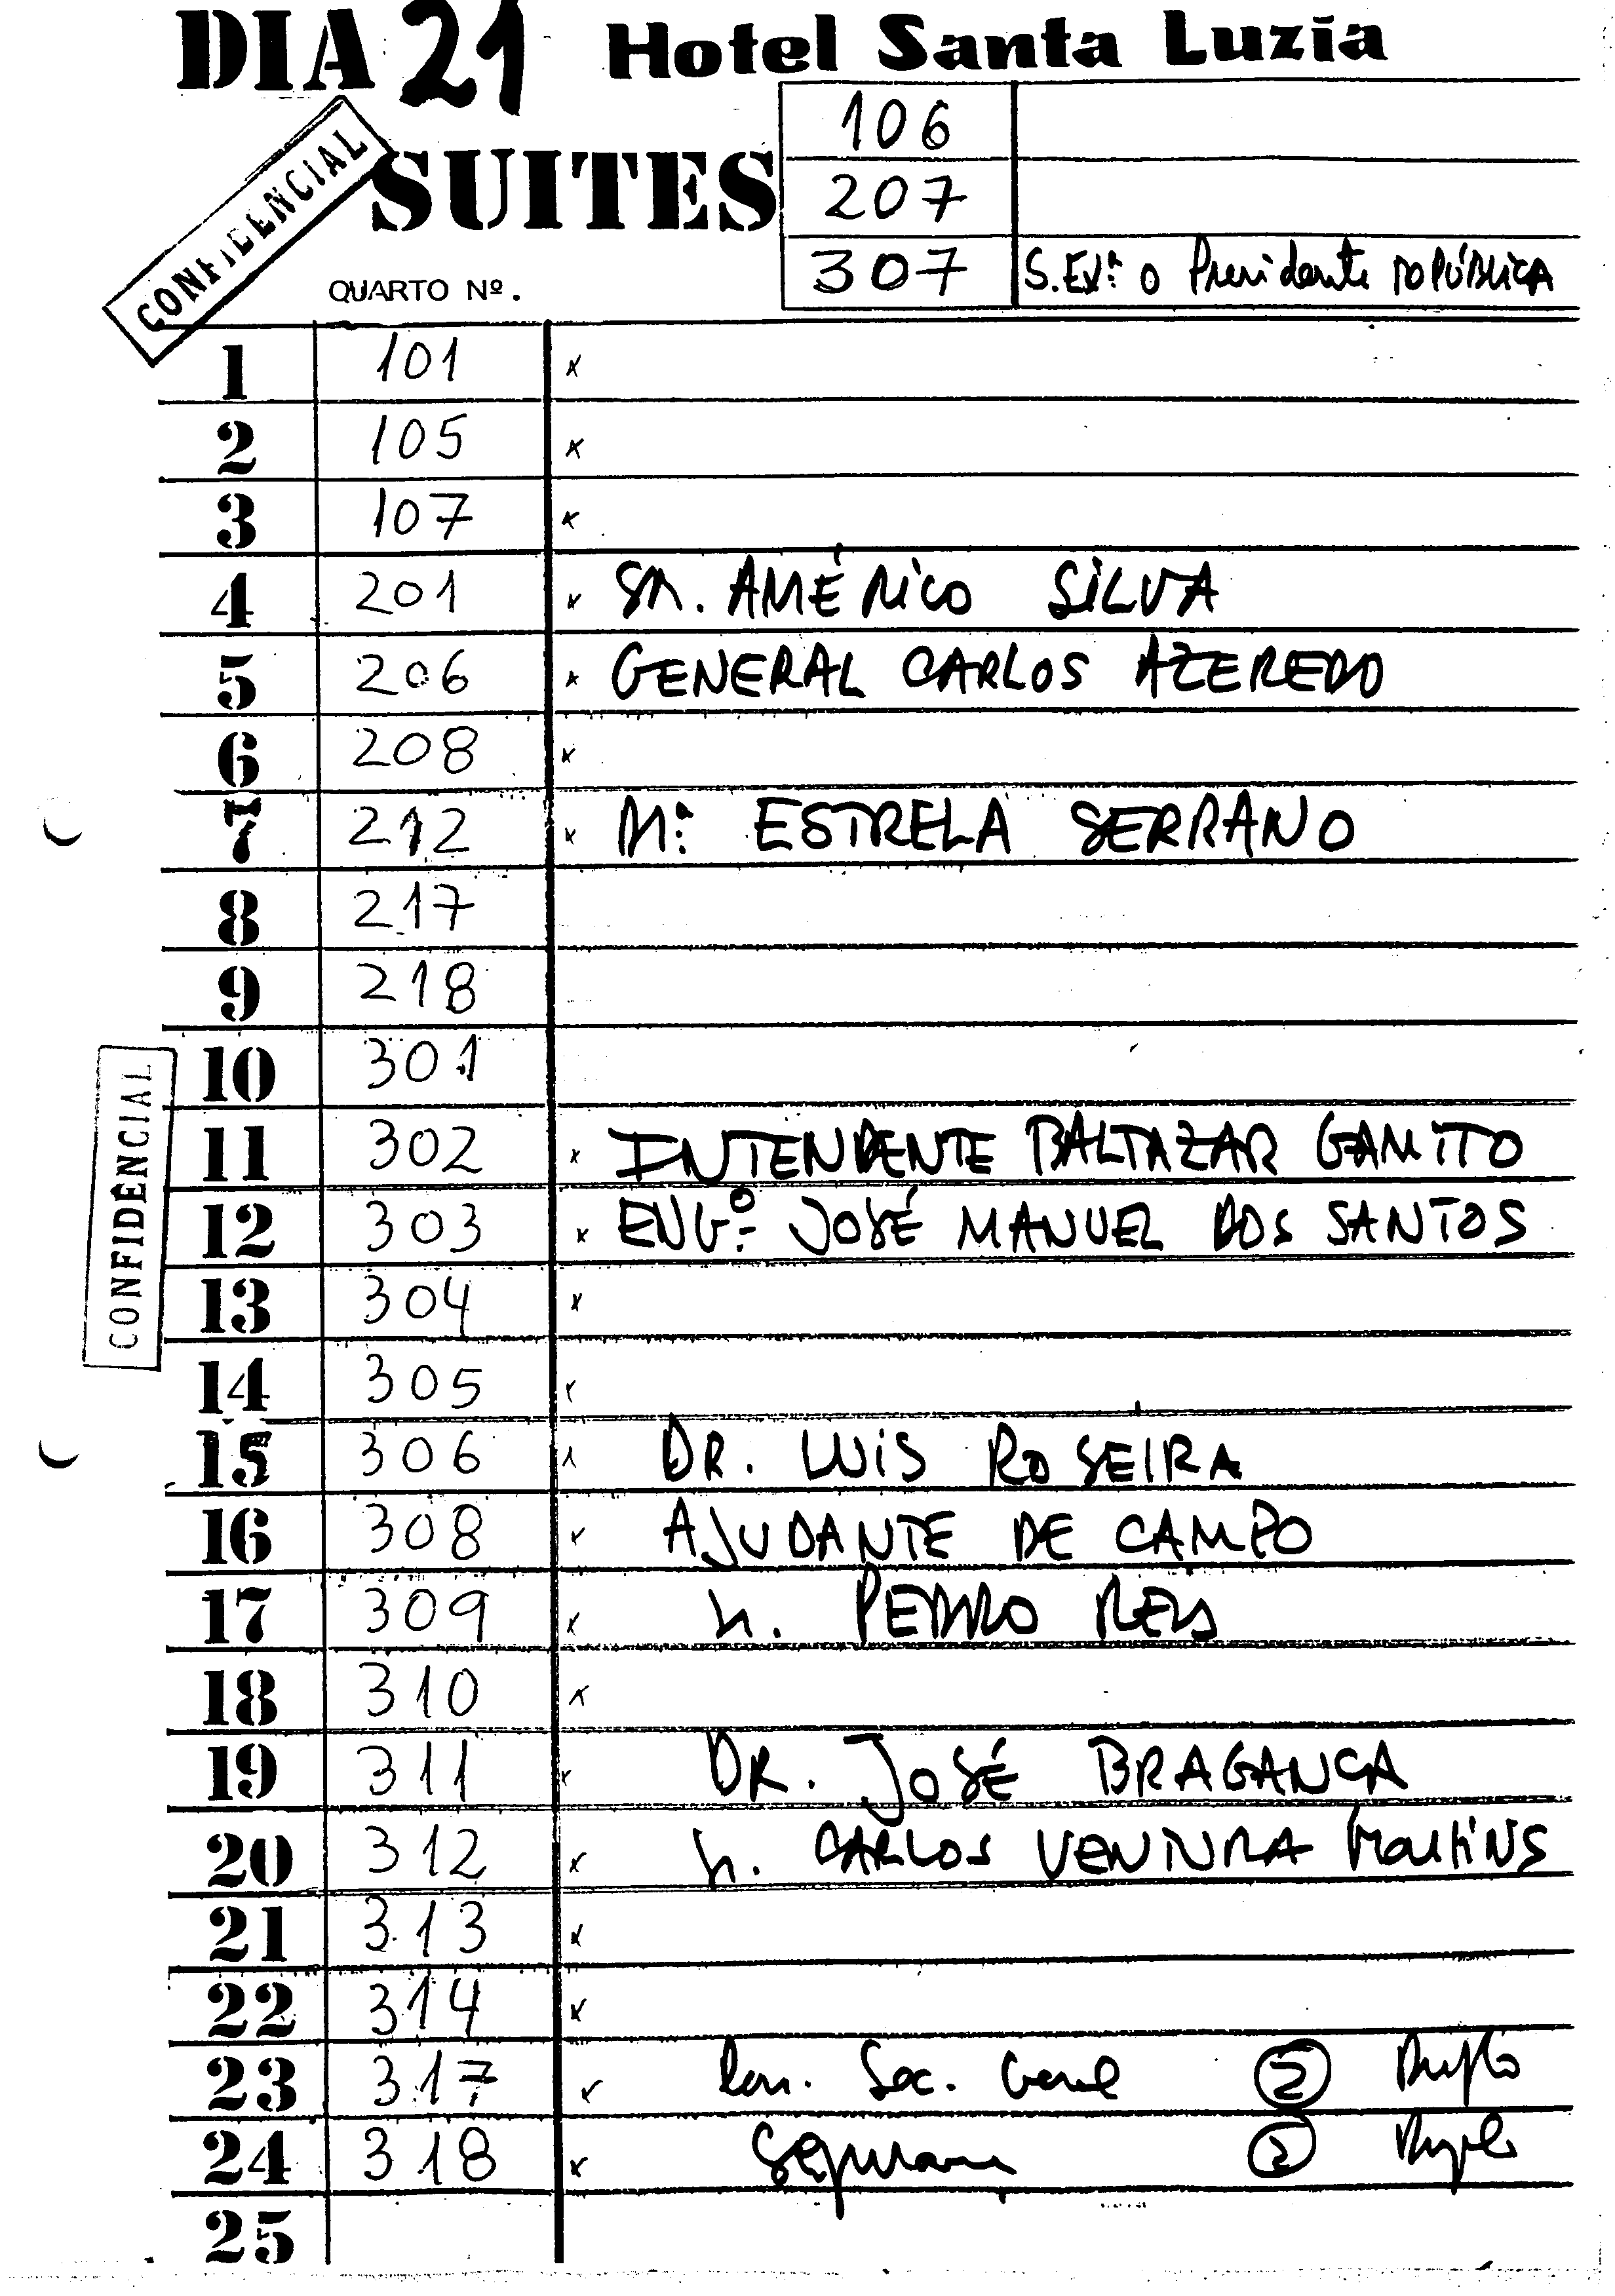 DIA 21 Hotel Santa Luzia
CONFIDENCIAL
SUITES
106
207
307 S. Exª o Presidente República
QUARTO Nº.
1 101 x
2 105 x
3 107 x
4 201 x SR. AMÉRICO SILVA
5 206 x GENERAL CARLOS AZEREDO
6 208 x
7 212 x Mª ESTRELA SERRANO
8 217
9 218
10 301
CONFIDENCIAL
11 302 x INTENDENTE BALTAZAR GAMITO
12 303 x ENGº JOSÉ MANUEL DOS SANTOS
13 304 x
14 305 x
15 306 x DR. LUIS ROSEIRA
16 308 x AJUDANTE DE CAMPO
17 309 x PEDRO REIS
18 310 x
19 311 x DR. JOSÉ BRAGANÇA
20 312 x CARLOS VENTURA MARTINS
21 313 x
22 314 x
23 317 x Sec. Geral 2 Duplo
24 318 x Segurança 2 Duplo
25